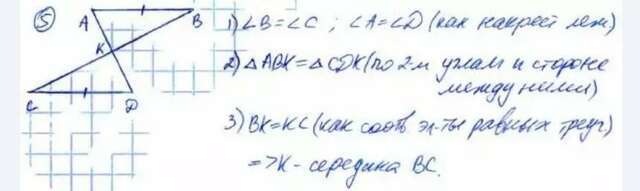 5
A B
K
C D
1) ∠B=∠C ; ∠A=∠D (как накрест леж)
2) △ABK=△CDK (по 2-м углам и стороне
между ними)
3) BK=KC (как соотв эл-ты равных треуг)
=>K - середина BC.